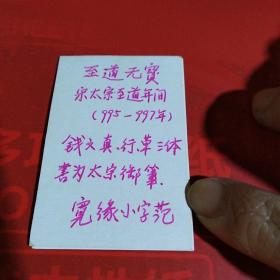 至道元寳
宋太宗至道年间
(995-997年)
錢文真、行、草三体
書为太宗御筆.
寬缘小字范